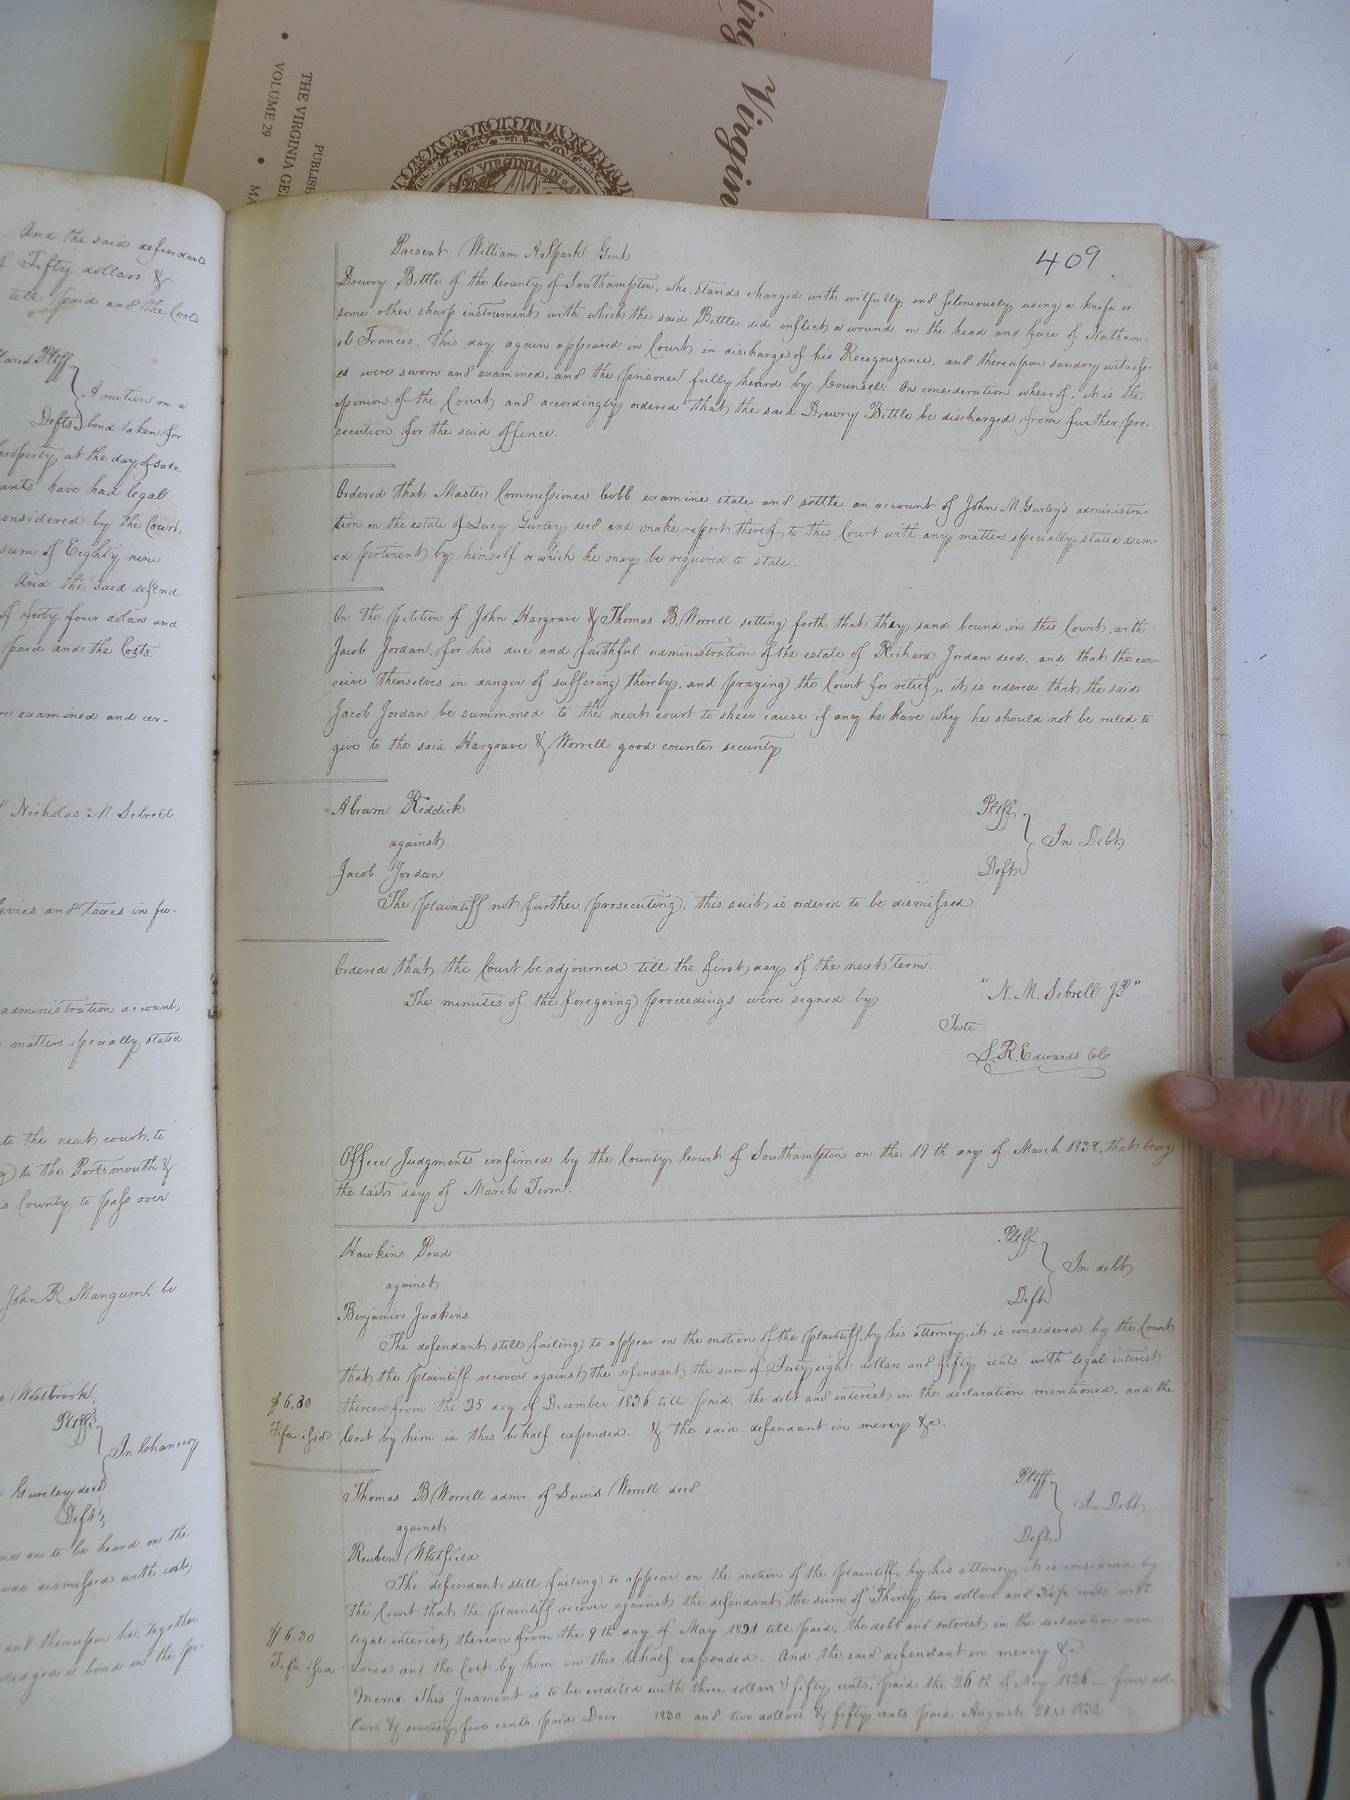 Virgin
PUBLISH
THE VIRGINIA GE
VOLUME 29
MA
VIRGINIA
And the said defendant
of Fifty dollars &
till paid and the Costs
Pltff
A motion on a
Defts bond taken for
property at the day of sale
ants have had legal
considered by the Court,
sum of Eighty nine
And the said defend
of forty four dolars and
paid and the Costs
re examined and cer-
Nicholas M Sebrell
levies and taxes in fu-
administration account,
matters specially stated
to the next court, to
to the Portsmouth &
s County to pass over
John R Mangum, be
Westbrook
Pltff
In Chancery
Gurley decd
Deft
me on to be heard on the
was dismissed with cost
and thereupon he, together
ledged a bond in the pe-
409
Present William A Spark Gent
Drewry Bittle of the County of Southampton, who stands charged with wilfully and feloniously using a knife or
some other sharp instrument with which the said Bittle did inflict a wound on the head and face of Nathani-
el Francis, this day again appeared in Court in discharge of his Recognizance, and thereupon sundry witness-
es were sworn and examined, and the prisoner fully heard by Counsel: On consideration whereof, it is the
opinion of the Court and accordingly ordered that the said Drewry Bittle be discharged from further pro-
secution for the said offence.
Ordered that Master Commissioner Cobb examine state and settle an account of John M Gurley's administra-
tion on the estate of Lucy Gurley decd and make report thereof to this Court with any matters specially stated deem-
ed pertinent by himself or which he may be required to state.
On the petition of John Hargrave & Thomas B. Worrell setting forth that they sand bound in this Court, with
Jacob Jordan, for his due and faithful administration of the estate of Richard Jordan decd, and that the con-
ceive themselves in danger of suffering thereby, and praying the Court for relief, it is ordered that the said
Jacob Jordan be summoned to the next court to shew cause if any he have why he should not be ruled to
give to the said Hargrave & Worrell good counter security
Abram Reddick Pltff
against In Debt
Jacob Jordan Deft
The plaintiff not further prosecuting, this suit is ordered to be dismissed
Ordered that the Court be adjourned till the first day of the next term.
The minutes of the foregoing proceedings were signed by "N. M. Sebrell JP"
Teste
L. R. Edwards Clc
Office Judgments confirmed by the County Court of Southampton on the 19 th day of March 1838, that being
the last day of March Term.
Hawkins Pond Pltff
against In debt
Benjamin Judkins Deft
The defendant still failing to appear on the motion of the plaintiff, by his attorney, it is considered by the Court
that the plaintiff recover against the defendant the sum of Forty eight dollars and fifty cents with legal interest
$6.30 thereon from the 25 day of December 1836 till paid, the debt and interest in the declaration mentioned, and the
Fi fa issd Cost by him in this behalf expended. & the said defendant in mercy &c.
Thomas B Worrell admr. of Lewis Worrell decd Pltff
against In Debt
Reuben Whitfield Deft
The defendant still failing to appear on the motion of the plaintiff, by his attorney, it is considered by
the Court that the plaintiff recover against the defendant the sum of Thirty two dollars and cents with
$6.30 legal interest thereon from the 9th day of May 1821 till paid, the debt and interest in the declaration men
Fi fa issd tioned and the Cost by him in this behalf expended. And the said defendant in mercy &c
Memo. This Jugment is to be credited with three dollars & fifty cents, paid the 26th of May 1826 - four dol
lars & seventy five cents paid Decr. 1830 and two dollars & fifty cents paid August 21st 1832